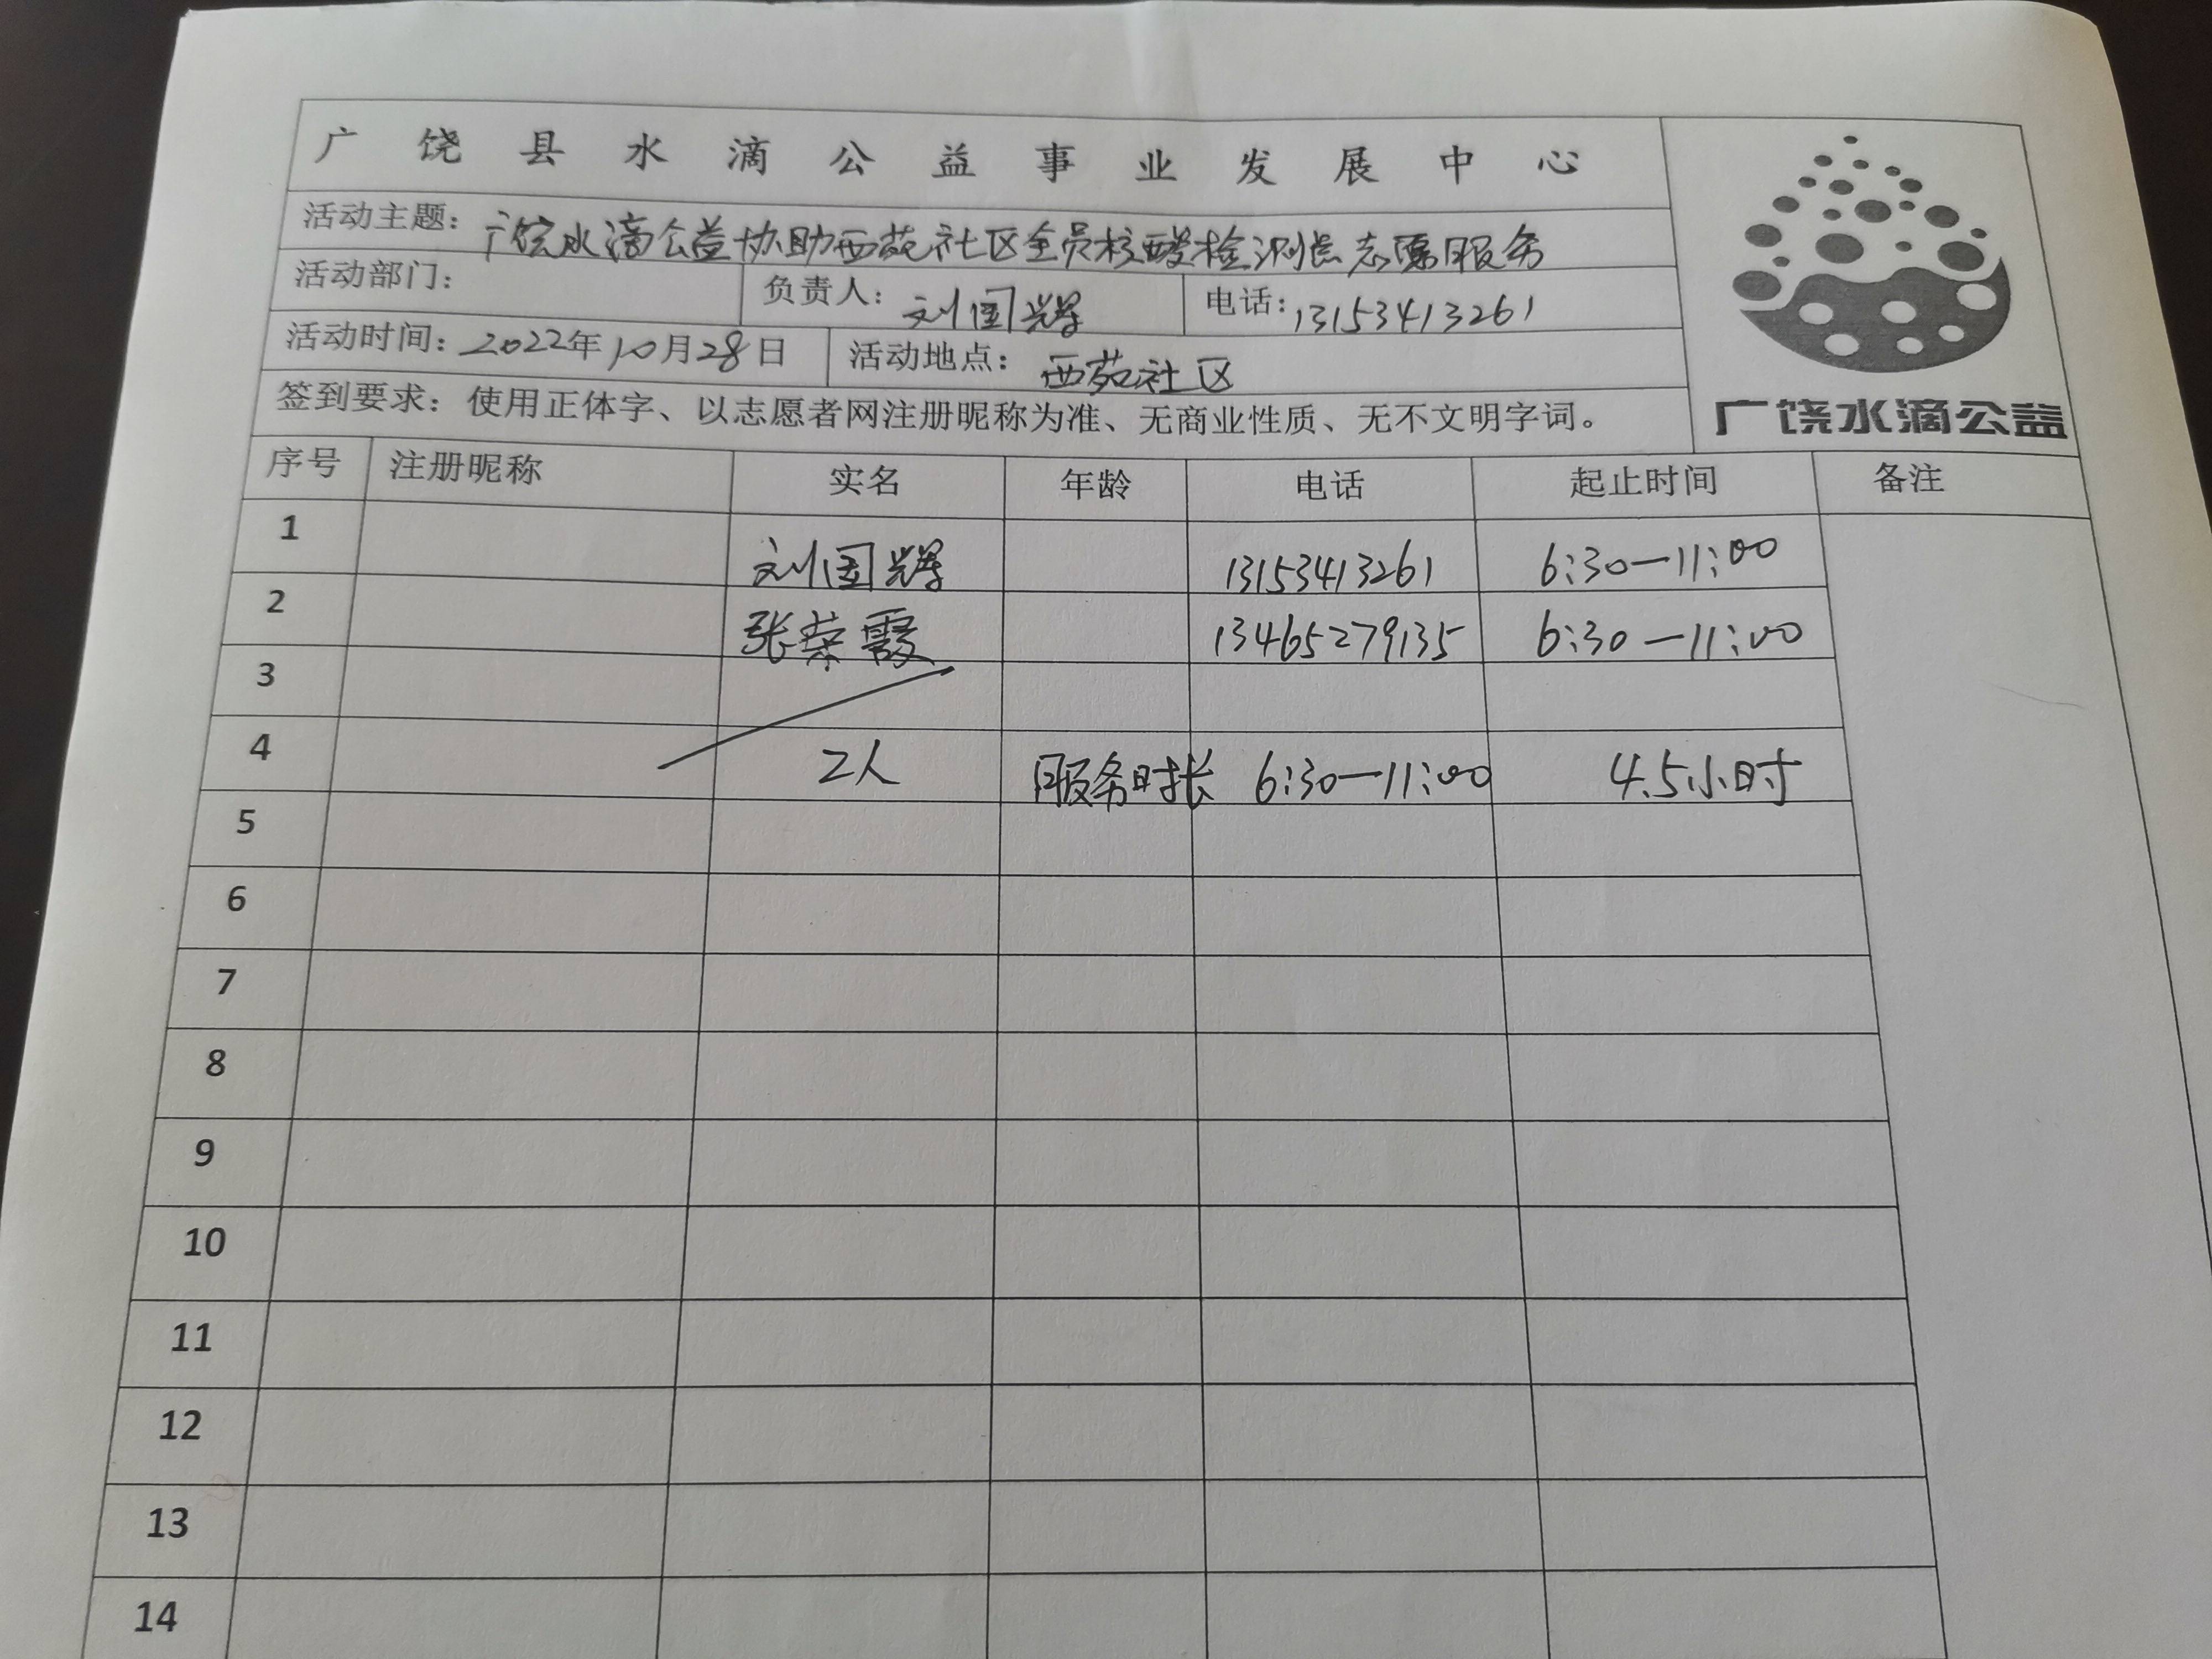 广饶县水滴公益事业发展中心
活动主题：广饶水滴公益协助西苑社区全员核酸检测点志愿服务
活动部门： 负责人：刘国辉 电话：13153413261
活动时间：2022年10月28日 活动地点：西苑社区
签到要求：使用正体字、以志愿者网注册昵称为准、无商业性质、无不文明字词。
广饶水滴公益
序号 注册昵称 实名 年龄 电话 起止时间 备注
1 刘国辉 13153413261 6:30—11:00
2 张荣霞 13465279135 6:30—11:00
3
4 2人 服务时长 6:30—11:00 4.5小时
5
6
7
8
9
10
11
12
13
14